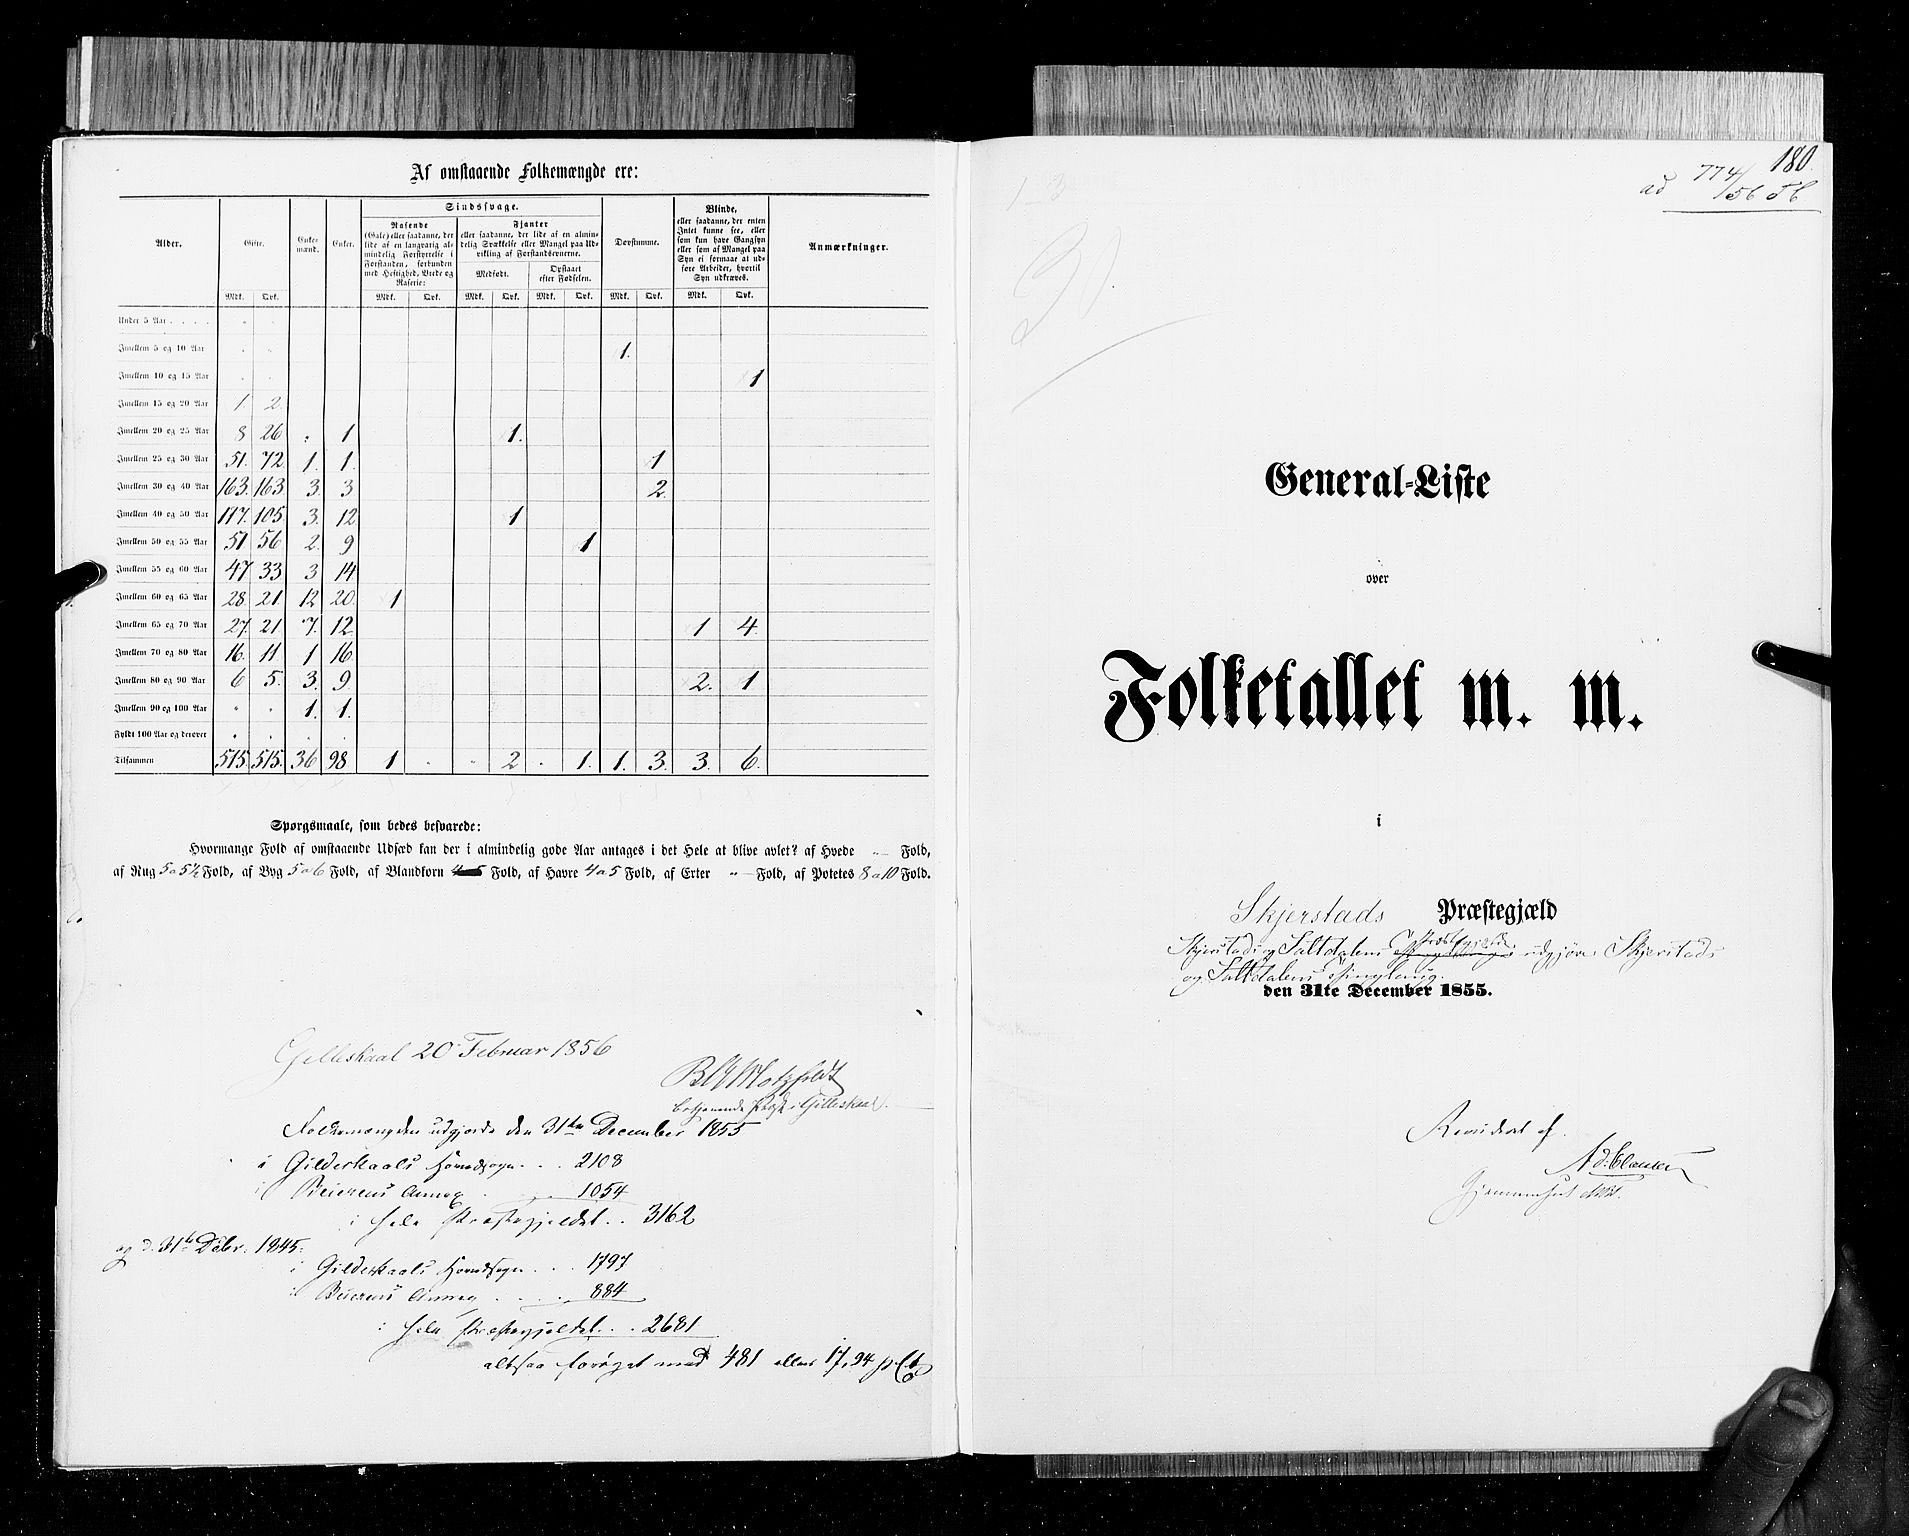 Af omstaaende Folkemængde ere:
Alder. Gifte. Enkemænd. Enker. Sindssvage. Døvstumme. Blinde, Anmærkninger.
Rasende (Gale) eller saadanne, der lide af en langvarig almindelig Forstyrrelse i Forstanden, forbunden med Heftighed, Vrede og Raserie:
Fjanter eller saadanne, der lide af en almindelig Svækkelse eller Mangel paa Udvikling af Forstandsevnerne.
Medfødt. Opstaaet efter Fødselen.
eller saadanne, der enten Intet kunne see, eller som kun have Gangsyn eller som af Mangel paa Syn ei formaae at udføre Arbeider, hvortil Syn udkræves.
Mdk. Qvk. Mdk. Qvk. Mdk. Qvk. Mdk. Qvk. Mdk. Qvk. Mdk. Qvk.
Under 5 Aar . . . .
Imellem 5 og 10 Aar 1.
Imellem 10 og 15 Aar 1
Imellem 15 og 20 Aar 1. 2.
Imellem 20 og 25 Aar 8 26 " 1 1.
Imellem 25 og 30 Aar 51. 72. 1. 1. 1
Imellem 30 og 40 Aar 163. 163. 3. 3 2.
Imellem 40 og 50 Aar 117. 105. 3. 12 1
Imellem 50 og 55 Aar 51 56 2. 9 1
Imellem 55 og 60 Aar 47 33 3 14
Imellem 60 og 65 Aar 28. 21. 12 20. 1
Imellem 65 og 70 Aar 27. 21 7. 12. 1 4.
Imellem 70 og 80 Aar 16. 11 1 16.
Imellem 80 og 90 Aar 6 5. 3. 9. 2. 1
Imellem 90 og 100 Aar " " 1. 1.
Fyldt 100 Aar og derover " . . .
Tilsammen 515. 515. 36 98. 1 " " 2 " 1. 1. 3. 3. 6.
Spørgsmaale, som bedes besvarede:
Hvormange Fold af omstaaende Udsæd kan der i almindelig gode Aar antages i det Hele at blive avlet? af Hvede "— Fold,
af Rug 5 a 5½ Fold, af Byg 5 a 6 Fold, af Blandkorn Fold, af Havre 4 a 5 Fold, af Erter "— Fold, af Potetes 8 a 10 Fold.
Gilleskaal 20 Februar 1856
Motzfeldt
Gilleskaal.
Folkemængden udgjorde den 31te December 1855
i Gilderskaals Hovedsogn . . . 2108
i Beierens Annex . . . 1054
i hele Præstegjeldet . . 3162
og d. 31te Decbr. 1845:
i Gilderskaals Hovedsogn . . . 1797
i Beierens Annex . . . . 884
i hele Præstegjeldet . . . 2681
altsaa forøget med 481 eller 17,94 pCt.
180.
ad 774/56
General-Liste
over
Folketallet m. m.
i
Skjerstads Præstegjæld
Skjerstads og Saltdalens Præstegjelde udgjøre Skjerstads
og Saltdalens Thinglaug.
den 31te December 1855.
Revideret af
Gjennemseet